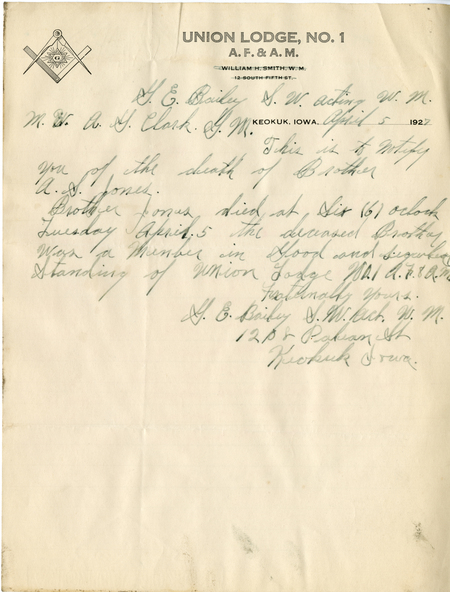 UNION LODGE, NO. 1
A. F. & A. M.
WILLIAM H. SMITH, W. M.
12 SOUTH FIFTH ST.
G. E. Bailey S. W. acting W. M.
M. W. A. G. Clark G. M. KEOKUK, IOWA, April 5 1927
This is to notify
you of the death of Brother
A. S. Jones.
Brother Jones died at Six (6) oclock
Tuesday April 5 the deceased Brothey
was a Member in Good and regular
Standing of Union Lodge No 1 A. F. & A M
Fraternally yours.
G. E. Bailey S. W. Act. W. M.
St
Keokuk Iowa.